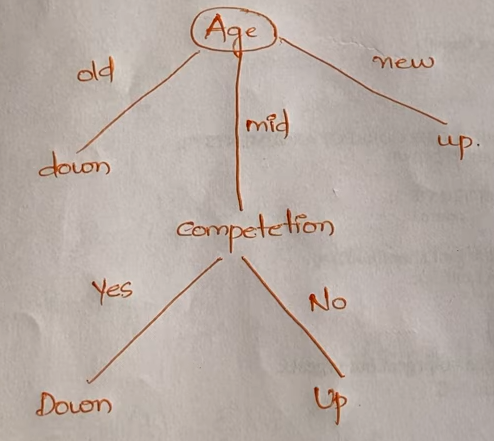 Age
old
new
mid
down
up.
Competetion
Yes
No
Down
Up